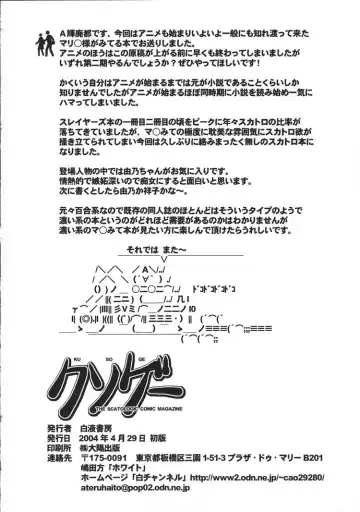 A輝廃都です、今回はアニメも始まりいよいよ一般にも知れ渡って来た
マリ○様がみてる本でお送りしました。
アニメのほうはこの原稿が上がる前に早くも終わってしまいましたが
いずれ第二期やるんでしょうか？ぜひやってほしいです！
かくいう自分はアニメが始まるまでは元が小説であることくらいしか
知りませんでしたがアニメが始まるほぼ同時期に小説を読み始め一気に
ハマってしまいました。
スレイヤーズ本の一冊目二冊目の頃をピークに年々スカトロの比率が
落ちてきていましたが、マ○みての極度に耽美な雰囲気にスカトロ欲が
掻き立てられてしまい今回は久しぶりに絡みまったく無しのスカトロ本に
なりました。
登場人物の中では由乃ちゃんがお気に入りです。
情熱的で嫉妬深いので痴女にすると面白いと思います。
次に書くとしたら由乃か祥子かな～。
元々百合系なので既存の同人誌のほとんどはそういうタイプのようで
濃い系の本というのがどれほど需要があるのかはわかりませんが
濃い系のマ○みて本が見たい方に楽しんで頂けたらうれしいです。
それでは また～
KU SO GE
クソゲー
THE SCATOLOGIC COMIC MAGAZINE
発行者 白液書房
発行日 2004年4月29日 初版
印刷所 ㈱大陽出版
連絡先 〒175-0091 東京都板橋区三園1-51-3プラザ・ドゥ・マリーB201
嶋田方「ホワイト」
ホームページ「白チャンネル」http://www2.odn.ne.jp/~cao29280/
ateruhaito@pop02.odn.ne.jp